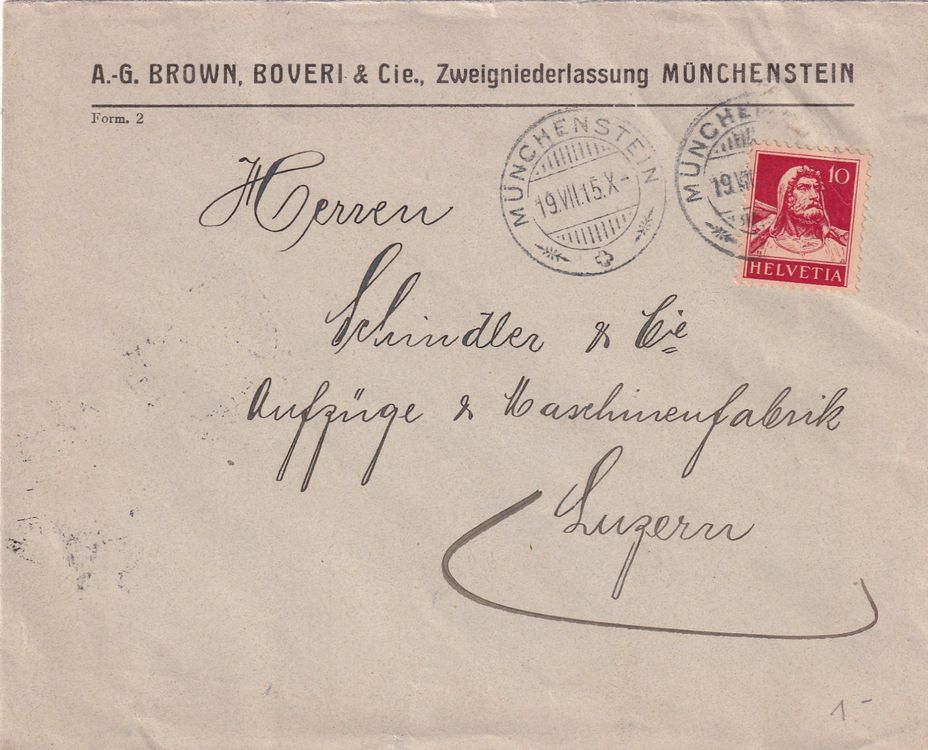 A.-G. BROWN, BOVERI & Cie., Zweigniederlassung MÜNCHENSTEIN
Form. 2
MÜNCHENSTEIN
19.VII.15.X-
MÜNCHE
19.VII
10
HELVETIA
Herren
Schindler & Cie
Aufzüge & Maschinenfabrik
Luzern
1.-